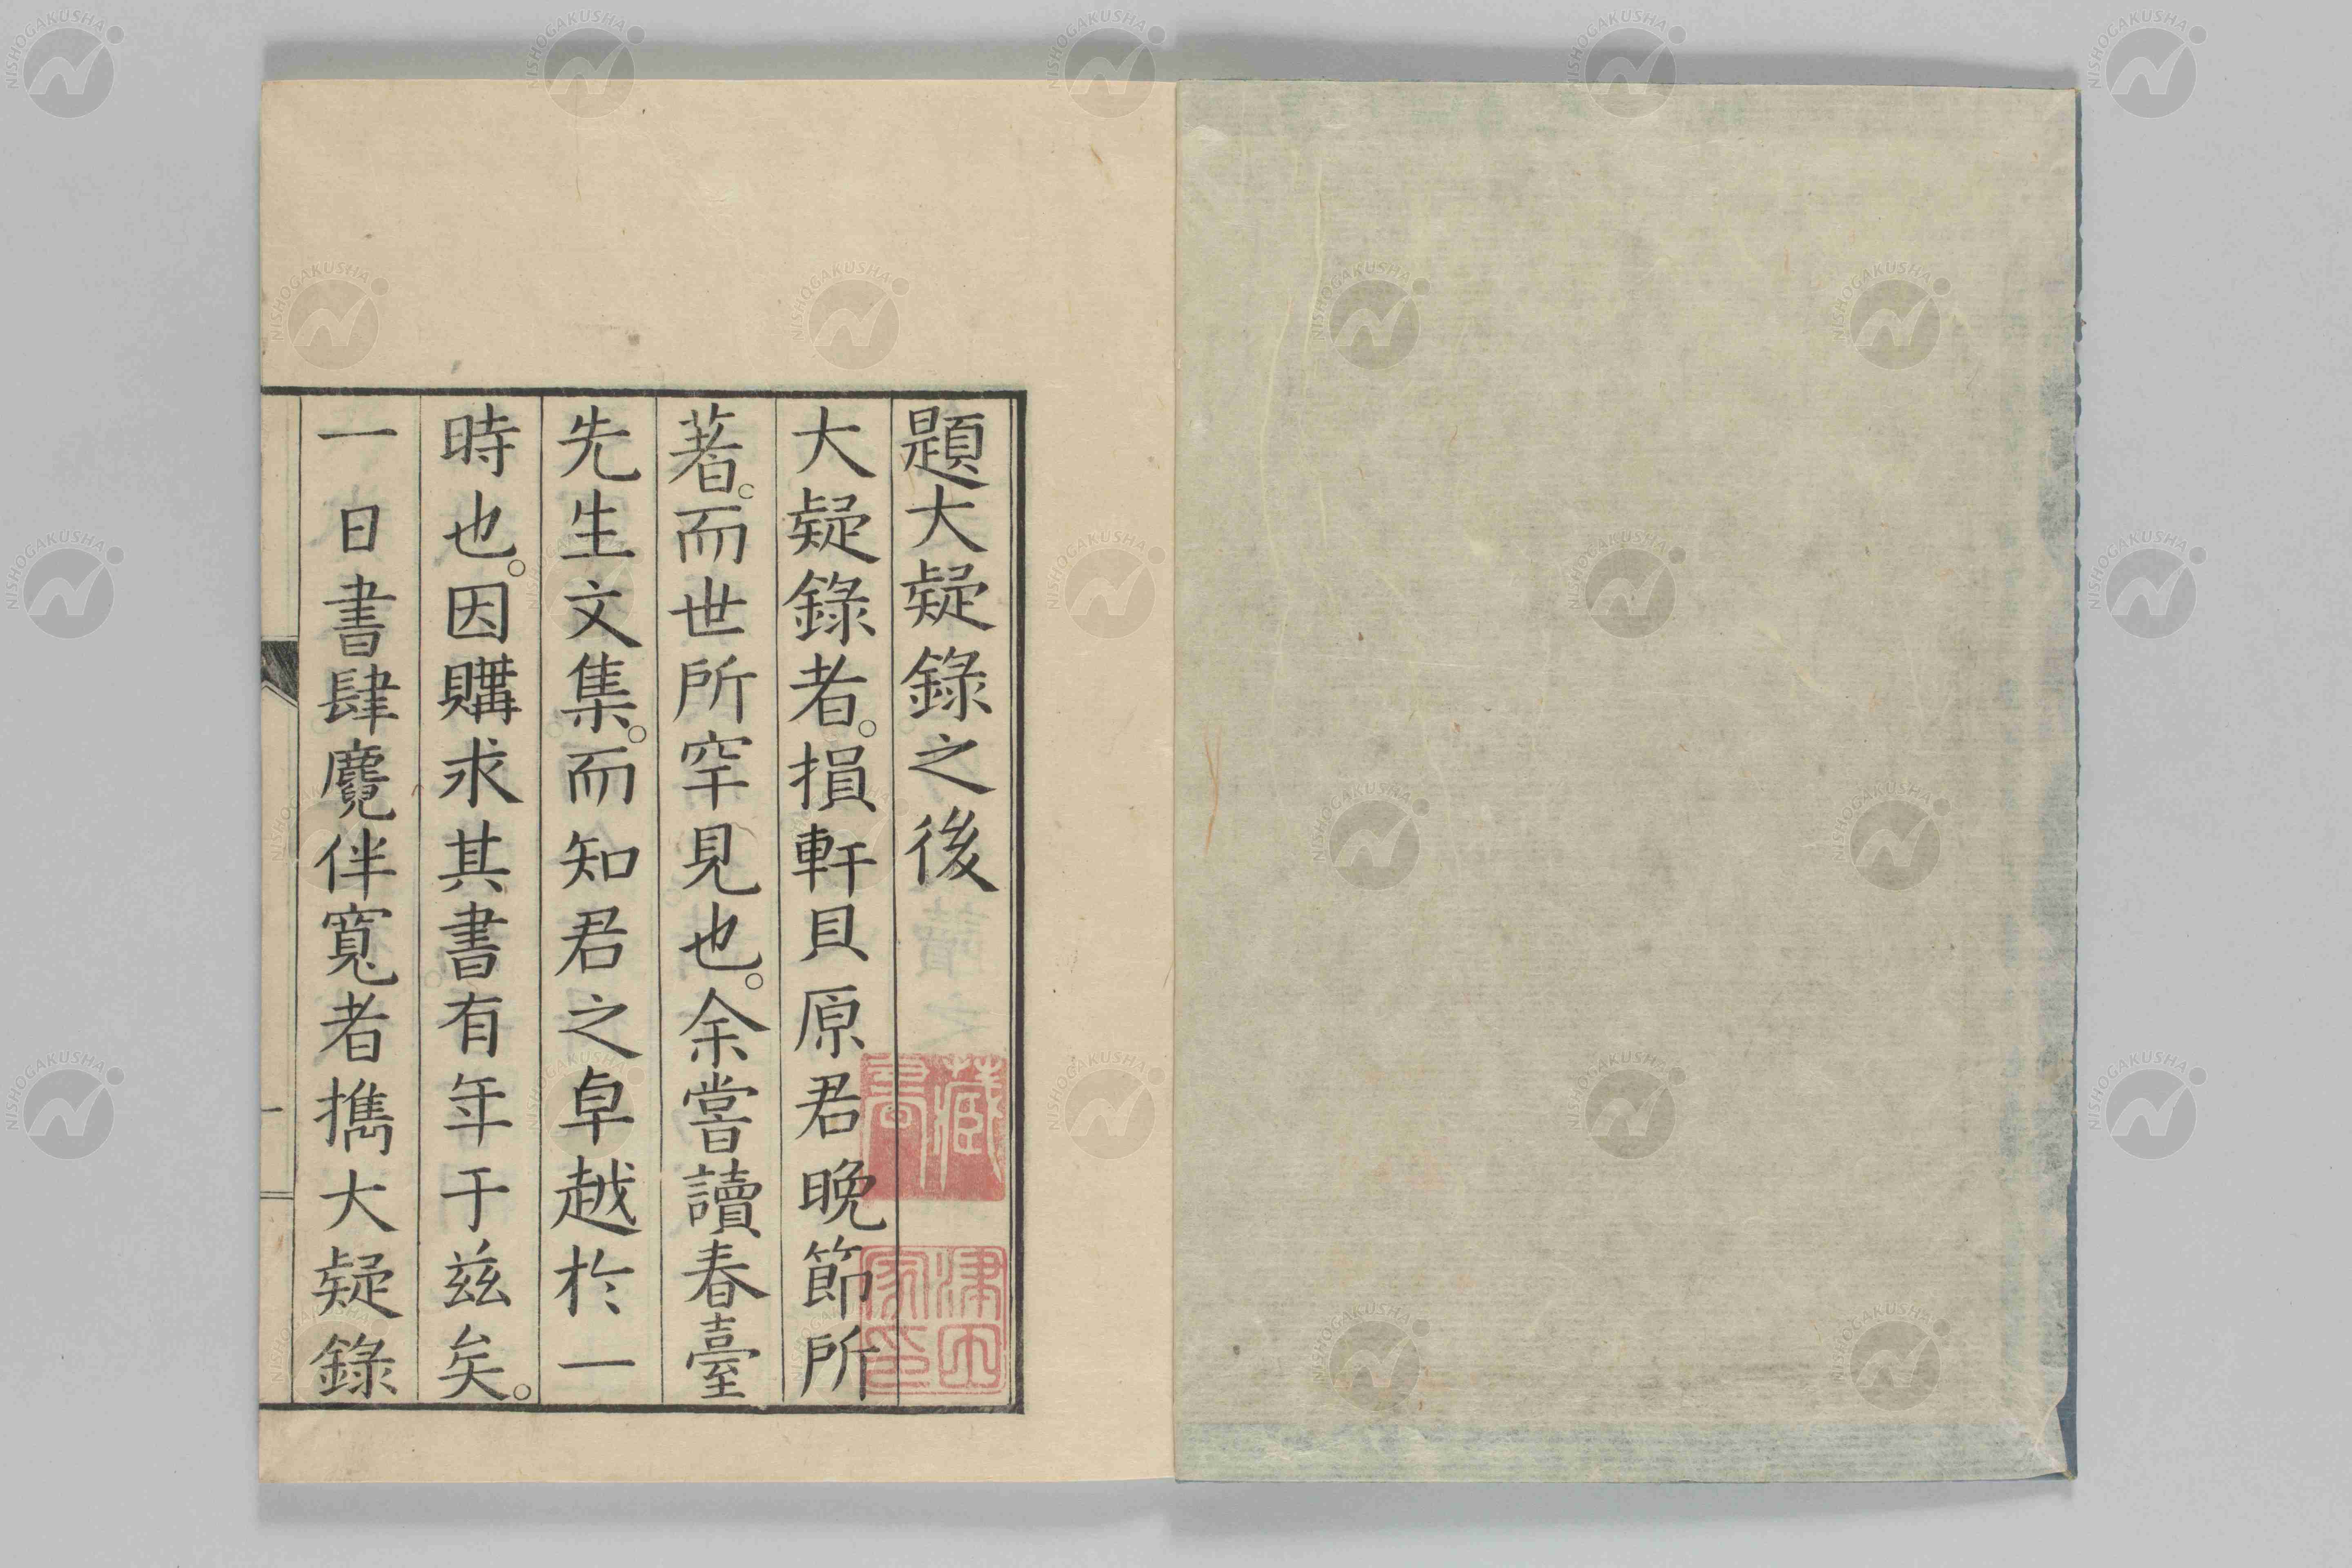 題大疑錄之後
大疑錄者。損軒貝原君晩節所
著。而世所罕見也。余嘗讀春臺
先生文集。而知君之卓越於一
時也。因購求其書有年于兹矣。
一日書肆麑伴寬者攜大疑錄
藏書
津田家印
NISHOGAKUSHA